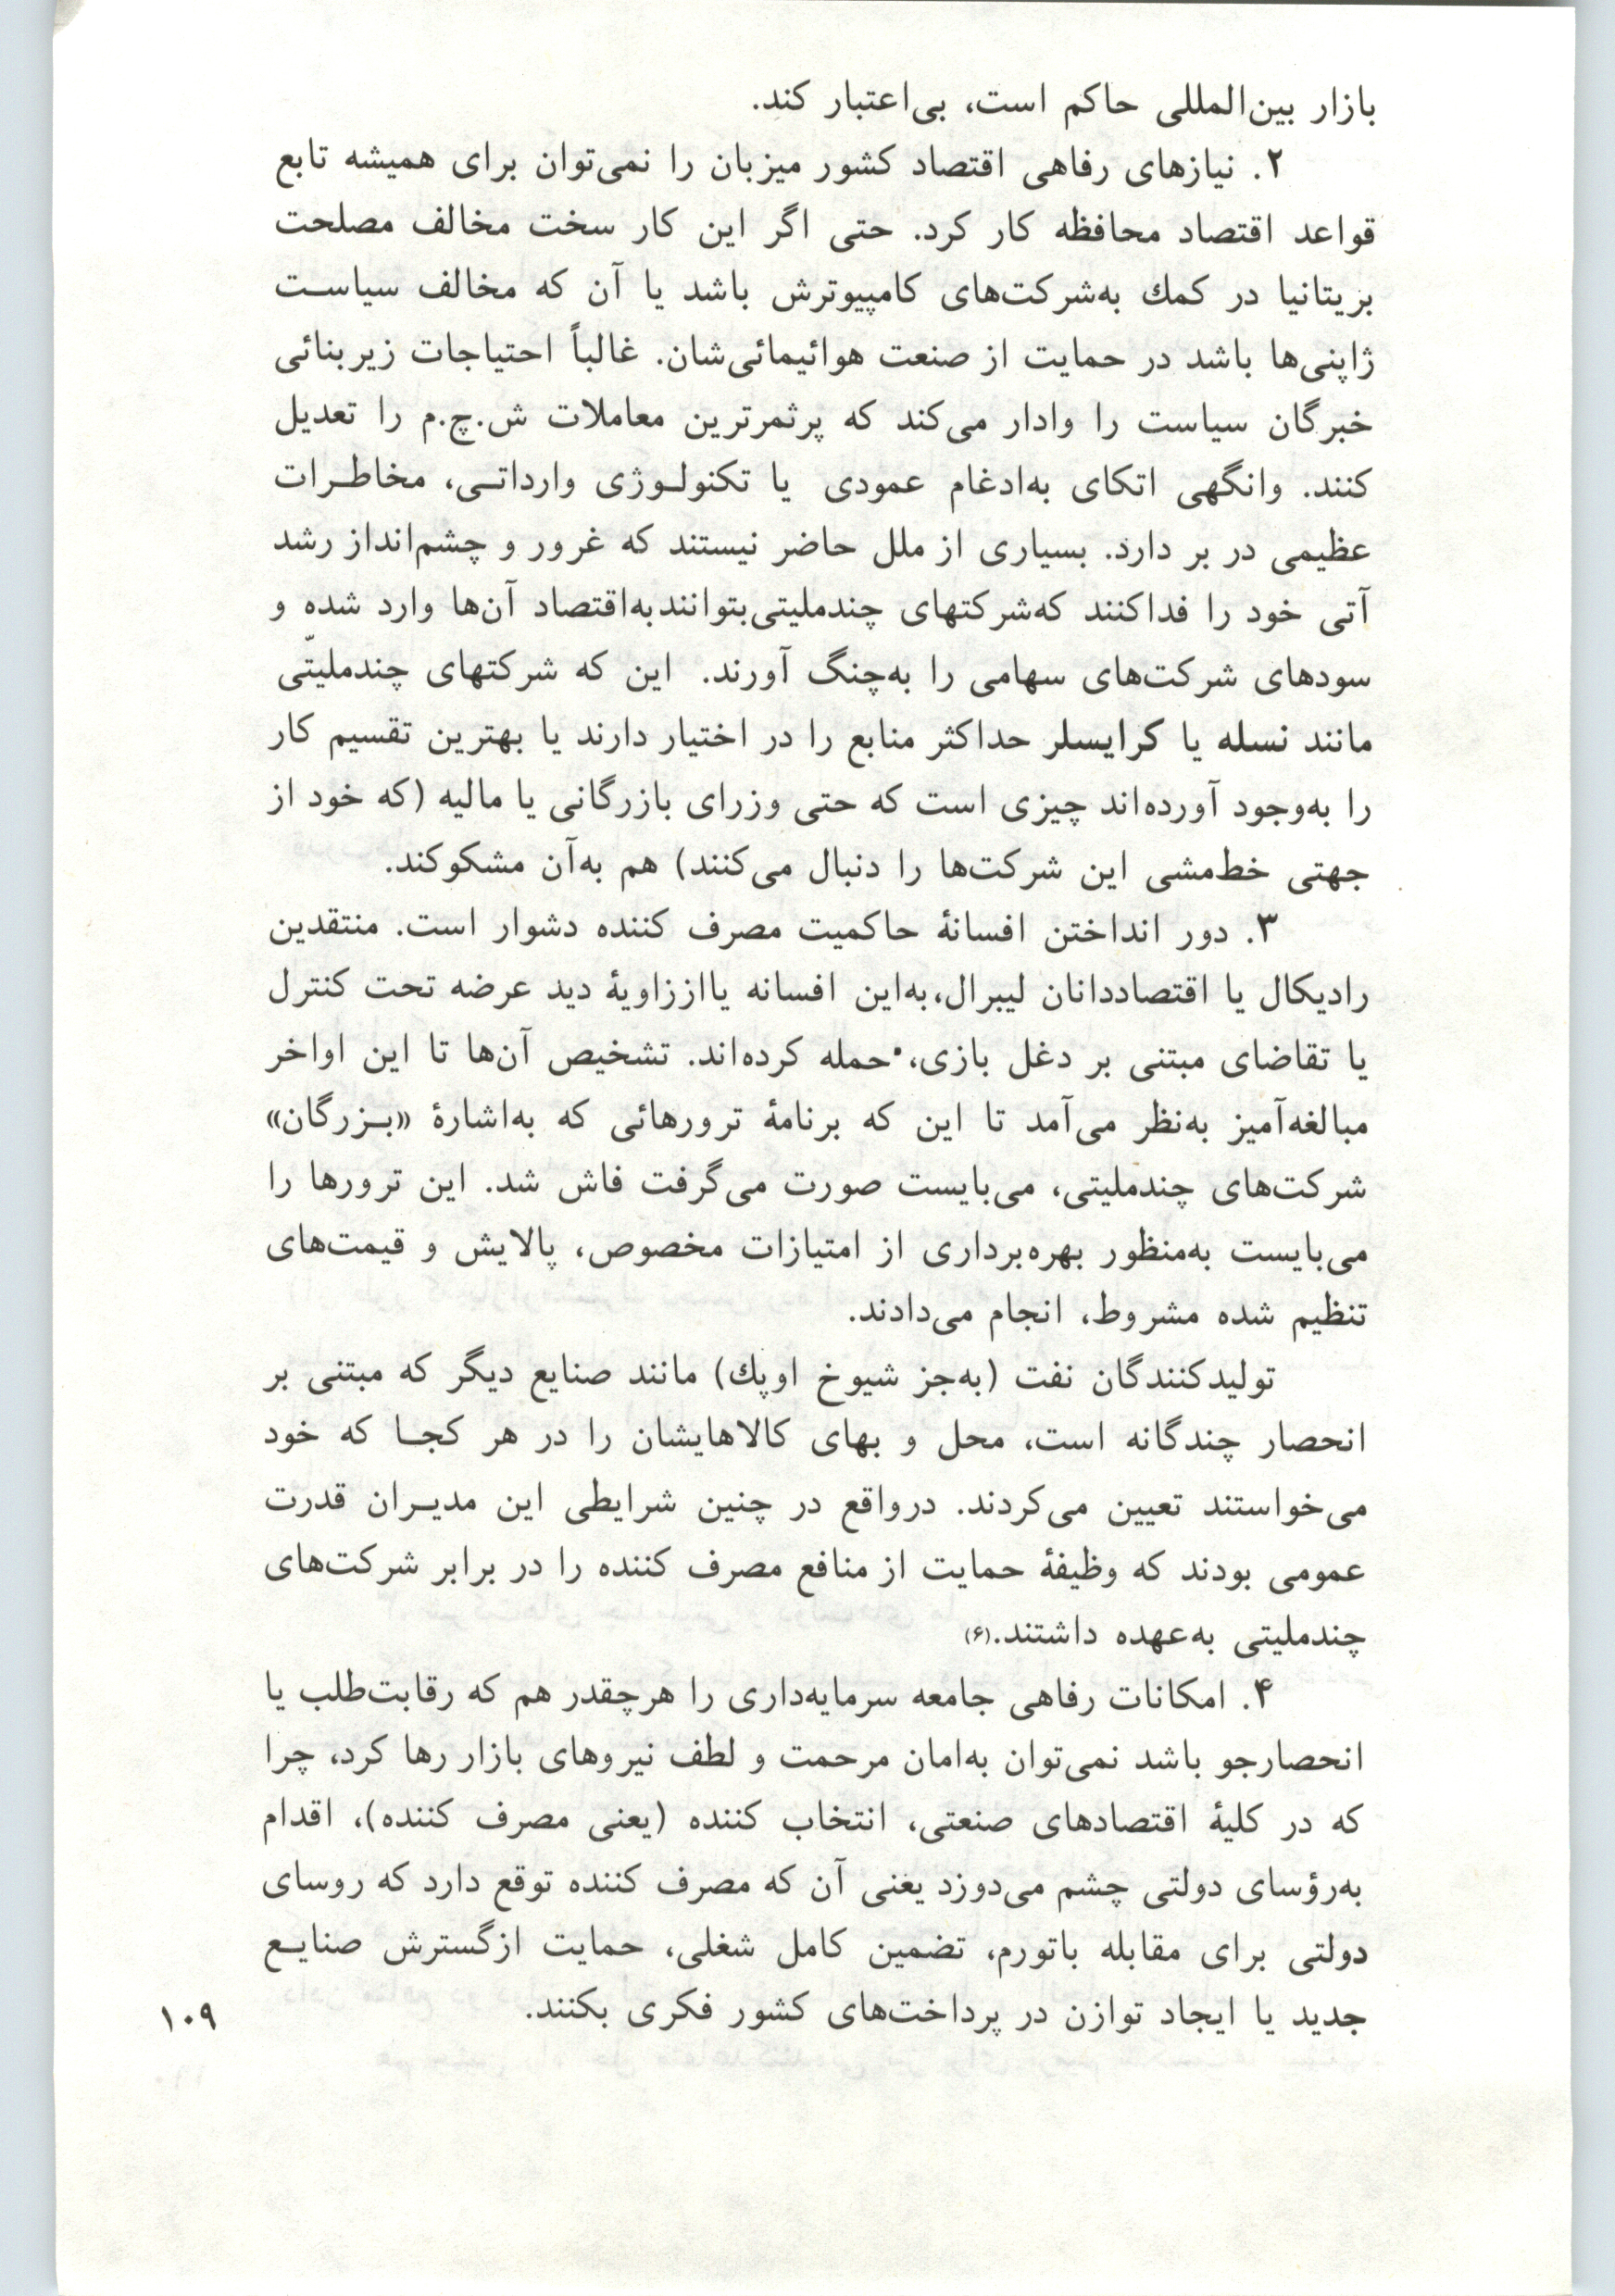 بازار بین‌المللی حاکم است، بی‌اعتبار کند.
۲. نیازهای رفاهی اقتصاد کشور میزبان را نمی‌توان برای همیشه تابع
قواعد اقتصاد محافظه کار کرد. حتی اگر این کار سخت مخالف مصلحت
بریتانیا در کمك به‌شرکت‌های کامپیوترش باشد یا آن که مخالف سیاست
ژاپنی‌ها باشد در حمایت از صنعت هوائیمائی‌شان. غالباً احتیاجات زیربنائی
خبرگان سیاست را وادار می‌کند که پرثمرترین معاملات ش.چ.م را تعدیل
کنند. وانگهی اتکای به‌ادغام عمودی یا تکنولوژی وارداتی، مخاطرات
عظیمی در بر دارد. بسیاری از ملل حاضر نیستند که غرور و چشم‌انداز رشد
آتی خود را فداکنند که‌شرکتهای چندملیتی‌بتوانندبه‌اقتصاد آن‌ها وارد شده و
سودهای شرکت‌های سهامی را به‌چنگ آورند. این که شرکتهای چندملیتّی
مانند نسله یا کرایسلر حداکثر منابع را در اختیار دارند یا بهترین تقسیم کار
را به‌وجود آورده‌اند چیزی است که حتی وزرای بازرگانی یا مالیه (که خود از
جهتی خط‌مشی این شرکت‌ها را دنبال می‌کنند) هم به‌آن مشکوکند.
۳. دور انداختن افسانهٔ حاکمیت مصرف کننده دشوار است. منتقدین
رادیکال یا اقتصاددانان لیبرال،به‌این افسانه یااززاویهٔ دید عرضه تحت کنترل
یا تقاضای مبتنی بر دغل بازی، حمله کرده‌اند. تشخیص آن‌ها تا این اواخر
مبالغه‌آمیز به‌نظر می‌آمد تا این که برنامهٔ ترورهائی که به‌اشارهٔ «بزرگان»
شرکت‌های چندملیتی، می‌بایست صورت می‌گرفت فاش شد. این ترورها را
می‌بایست به‌منظور بهره‌برداری از امتیازات مخصوص، پالایش و قیمت‌های
تنظیم شده مشروط، انجام می‌دادند.
تولیدکنندگان نفت (به‌جز شیوخ اوپك) مانند صنایع دیگر که مبتنی بر
انحصار چندگانه است، محل و بهای کالاهایشان را در هر کجا که خود
می‌خواستند تعیین می‌کردند. درواقع در چنین شرایطی این مدیران قدرت
عمومی بودند که وظیفهٔ حمایت از منافع مصرف کننده را در برابر شرکت‌های
چندملیتی به‌عهده داشتند.(۶)
۴. امکانات رفاهی جامعه سرمایه‌داری را هرچقدر هم که رقابت‌طلب یا
انحصارجو باشد نمی‌توان به‌امان مرحمت و لطف نیروهای بازار رها کرد، چرا
که در کلیهٔ اقتصادهای صنعتی، انتخاب کننده (یعنی مصرف کننده)، اقدام
به‌رؤسای دولتی چشم می‌دوزد یعنی آن که مصرف کننده توقع دارد که روسای
دولتی برای مقابله باتورم، تضمین کامل شغلی، حمایت ازگسترش صنایع
جدید یا ایجاد توازن در پرداخت‌های کشور فکری بکنند.
۱۰۹